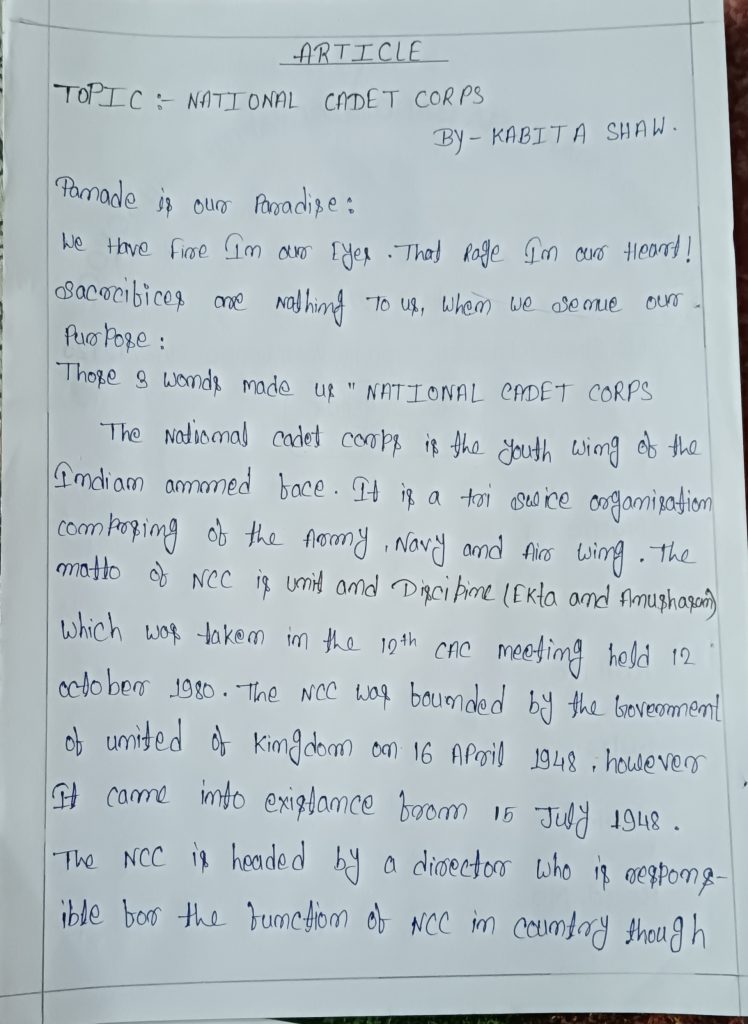 ARTICLE
TOPIC :- NATIONAL CADET CORPS
BY - KABITA SHAW.
Parade is our Paradise :
We Have Fire In our Eyes . That Rage In our Heart!
Sacrifices are Nothing To us, When we serve our
Purpose :
Those 3 words made up " NATIONAL CADET CORPS
The National cadet corps is the youth wing of the
Indian armed face. It is a tri service organisation
comprising of the Army , Navy and Air wing . The
matto of NCC is unit and Discipine (Ekta and Anushasan)
Which was taken in the 12th CAC meeting held 12
october 1980. The NCC was founded by the Government
of united of Kingdom on 16 APril 1948 , however
It came into existance from 15 July 1948 .
The NCC is headed by a director who is respons-
ible for the function of NCC in country though